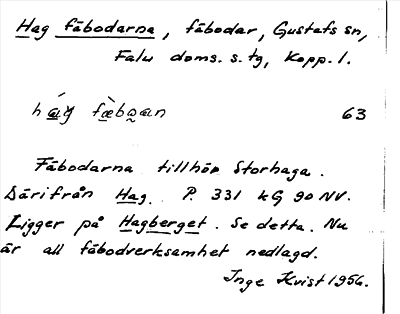 Hag fäbodarna, fäbodar, Gustafs sn,
Falu doms. s. tg, Kopp. l.
há̱g fæ̀bo̰an 63
Fäbodarna tillhör Storhaga.
Därifrån Hag. P. 331 kG 90 NV.
Ligger på Hagberget. Se detta. Nu
är all fäbodverksamhet nedlagd.
Inge Kvist 1956.